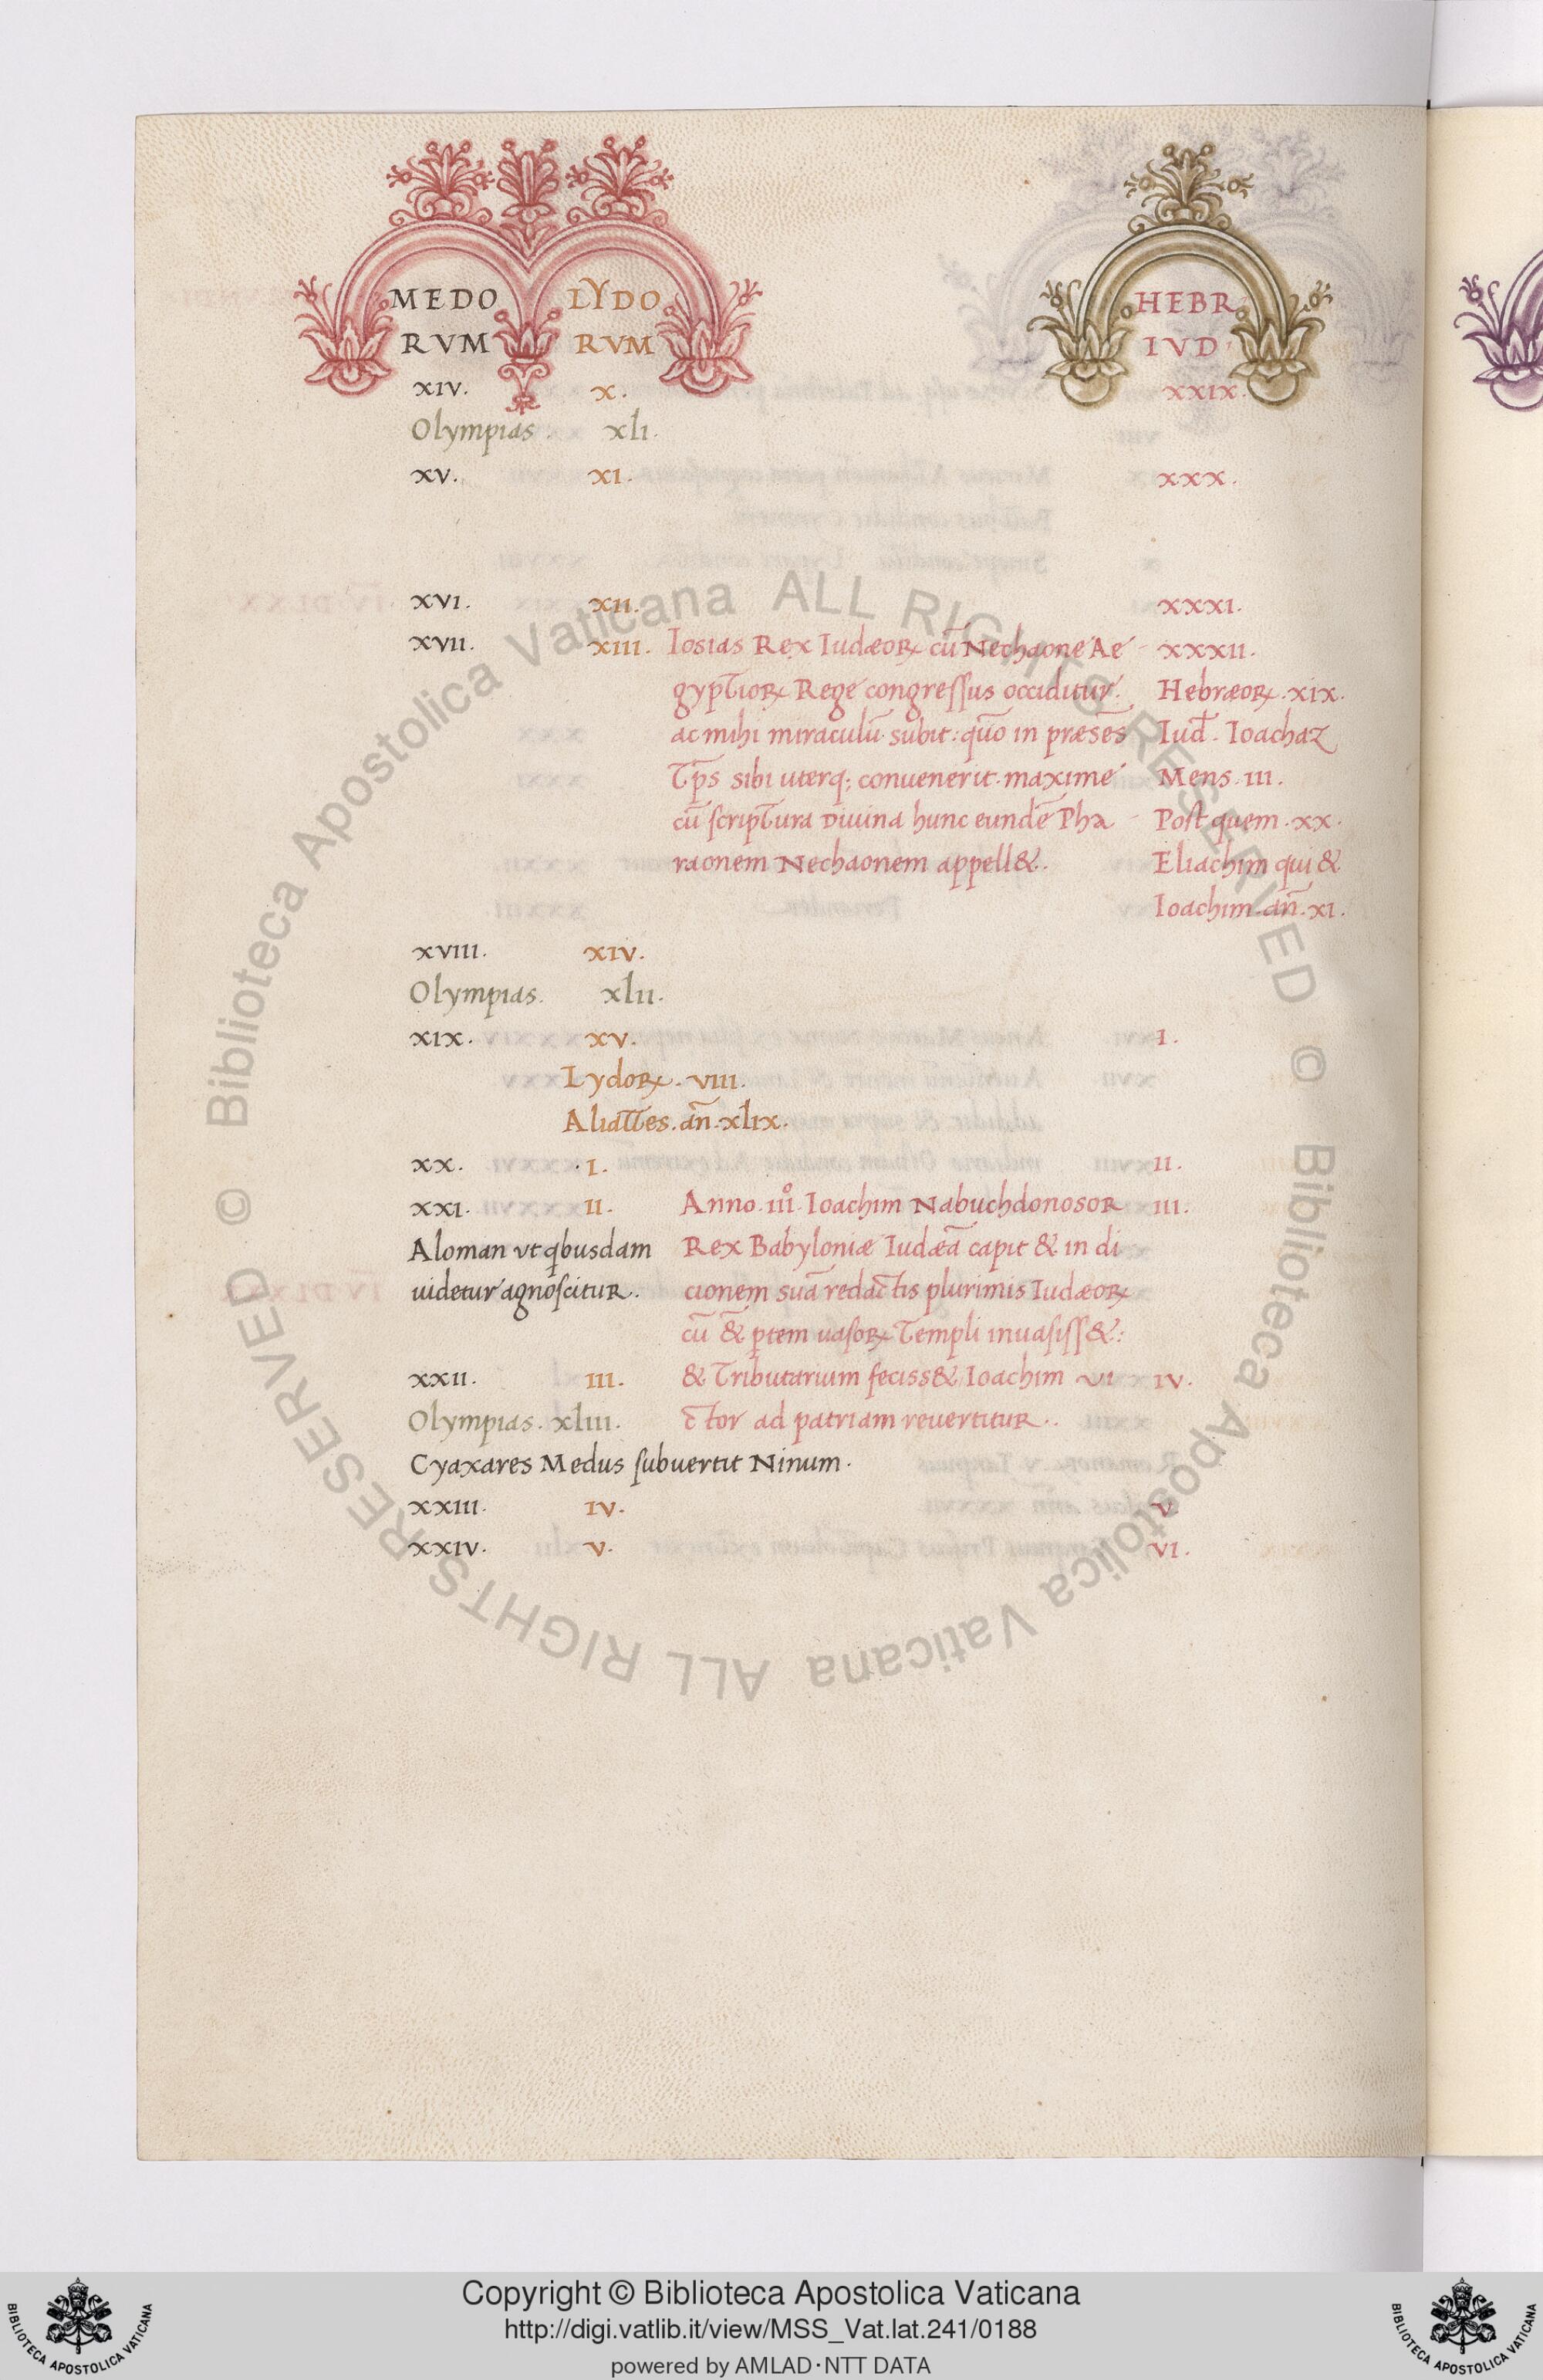 MEDO LYDO HEBR
RVM RVM IVD.
XIV. X. XXIX.
Olympias. xli.
XV. XI. XXX.
XVI. XII. XXXI.
XVII. XIII. Iosias Rex Iudæoꝝ cū Nechaone Ae XXXII.
gyptioꝝ Rege congreſſus occiditur. Hebræoꝝ. xix.
ac mihi miraculū subit: quō in præsēs Iud̄. Ioachaz
Tp̄s sibi uterq; conuenerit. maxime Mens. III.
cū ſcriptura Diuina hunc eundē Pha Poſt quem. xx.
raonem Nechaonem appell&. Eliachim qui &
Ioachim. an̄. XI.
XVIII. XIV.
Olympias. xlii.
XIX. XV. I.
Lydoꝝ. VIII.
Aliattes. an̄. xlix.
XX. I. II.
XXI. II. Anno. IIIº. Ioachim Nabuchdonosor III.
Aloman vt qbusdam Rex Babyloniæ Iudæā capit & in di
uidetur agnoſcitur. cionem suā redactis plurimis Iudæoꝝ
cū & ptem uaſoꝝ Templi inuaſiſſ&:
XXII. III. & Tributarium feciss& Ioachim vi IV.
Olympias. xliii. ctor ad patriam reuertitur..
Cyaxares Medus ſubuertit Ninum.
XXIII. IV. V.
XXIV. V. VI.
© Biblioteca Apostolica Vaticana ALL RIGHTS RESERVED
© Biblioteca Apostolica Vaticana ALL RIGHTS RESERVED
Copyright © Biblioteca Apostolica Vaticana
http://digi.vatlib.it/view/MSS_Vat.lat.241/0188
powered by AMLAD·NTT DATA
BIBLIOTECA APOSTOLICA VATICANA
BIBLIOTECA APOSTOLICA VATICANA